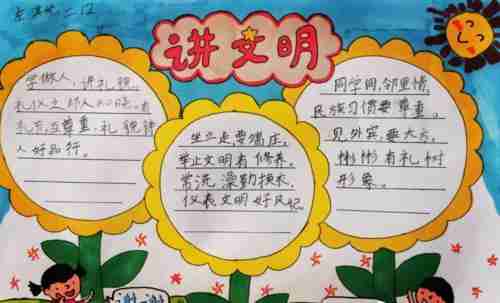 讲文明
学做人，讲礼貌，
礼仪之邦人人晓。有
礼节，互尊重，礼貌待
人好品行。
坐立走，要端庄，
举止文明有修养。
常洗澡勤换衣，
仪表文明好风纪。
同学间，邻里情，
民族习惯要尊重。
见外宾，要大方，
彬彬有礼树
形象。
谢谢